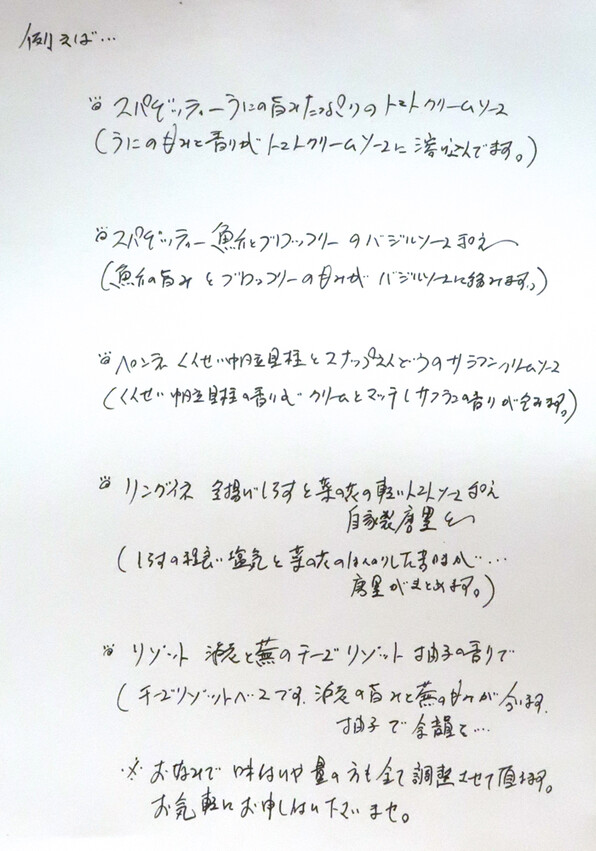 例えば…
スパゲッティー うにの旨みたっぷりの トマトクリームソース
(うにの甘みと香りが トマトクリームソースに 溶け込んでます。)
スパゲッティー 魚介とブロッコリー のバジルソース和え
(魚介の旨み とブロッコリーの甘みが バジルソースに絡みます。)
ペンネ くんせい帆立貝柱とスナップえんどうのサフランクリームソース
(くんせい帆立貝柱の香りが クリームとマッチしサフランの香りが包みます。)
リングイネ 釜揚げしらすと菜の花の軽いトマトソース和え
自家製唐墨を
(しらすの程良い塩気と菜の花のほんのりした苦味が…
唐墨がまとめます。)
リゾット と蕪のチーズリゾット 柚子の香りで
(チーズリゾットベースです。の旨みと蕪の甘みが合います。
柚子で余韻を…
※ お好みで 味わいや量の方も全て調整させて頂きます。
お気軽にお申し付け下さいませ。